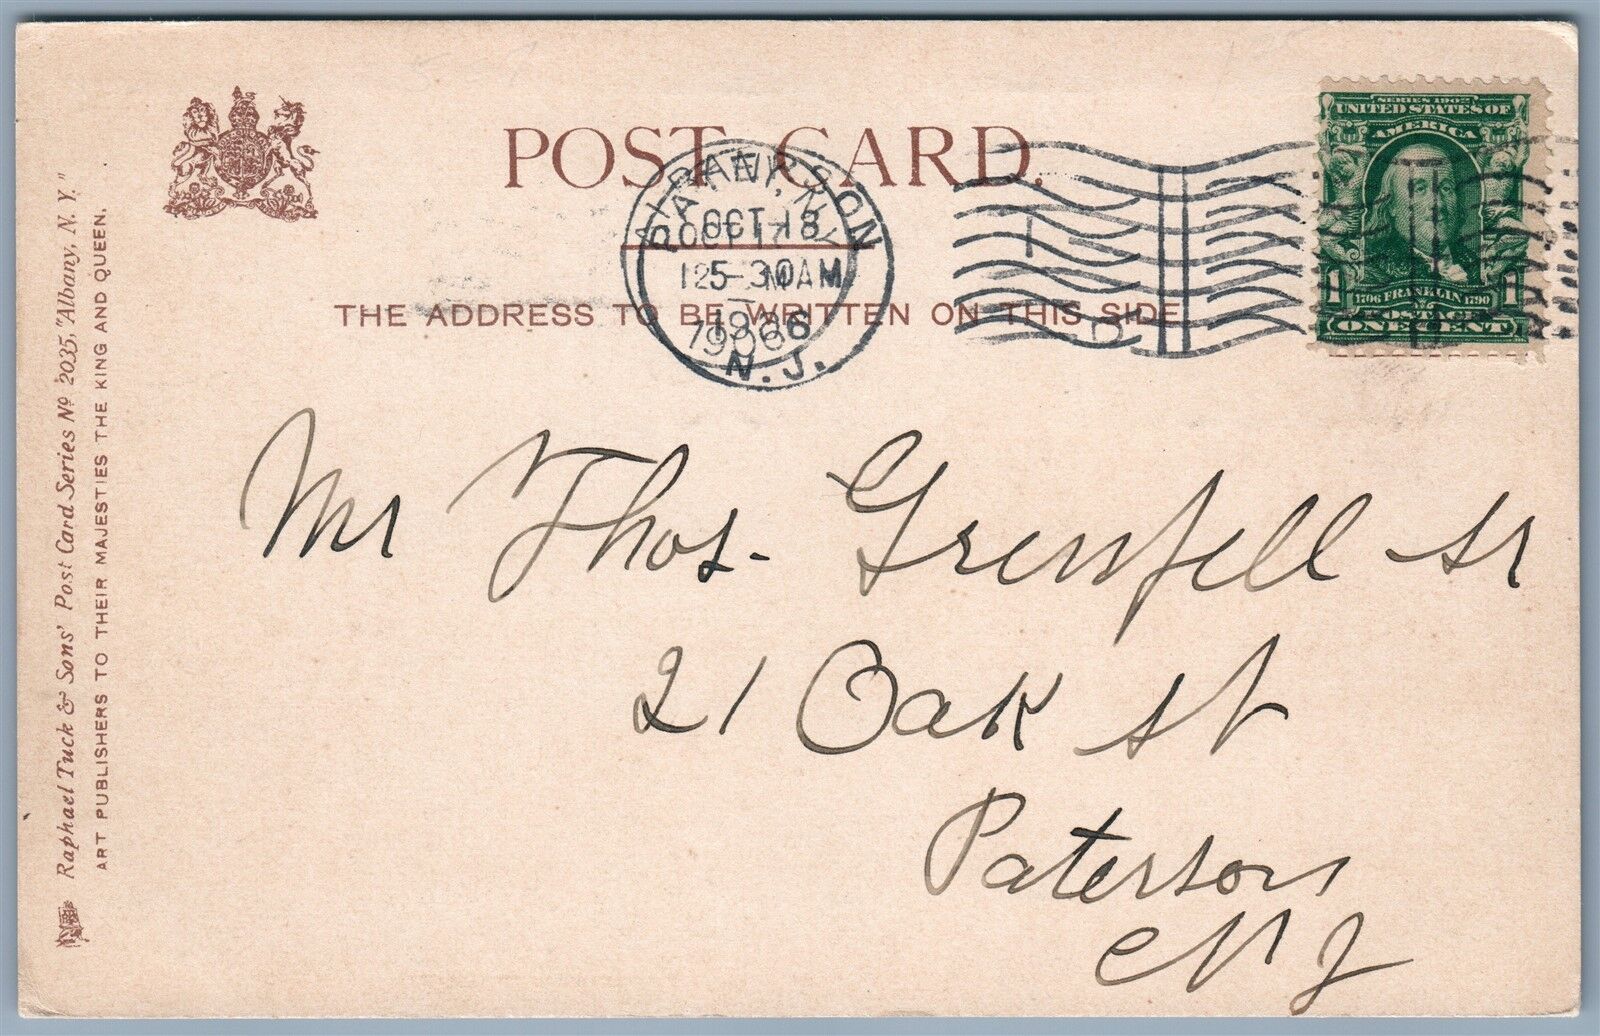 POST CARD.
THE ADDRESS TO BE WRITTEN ON THIS SIDE
Raphael Tuck & Sons' Post Card Series Nº 2035, "Albany, N. Y."
ART PUBLISHERS TO THEIR MAJESTIES THE KING AND QUEEN.
OCT 18
N.J.
SERIES 1902
UNITED STATES OF
AMERICA
1 1
1706 FRANKLIN 1790
POSTAGE
ONE CENT
Mr Thos. Grenfell Sr
21 Oak St
Paterson
N J